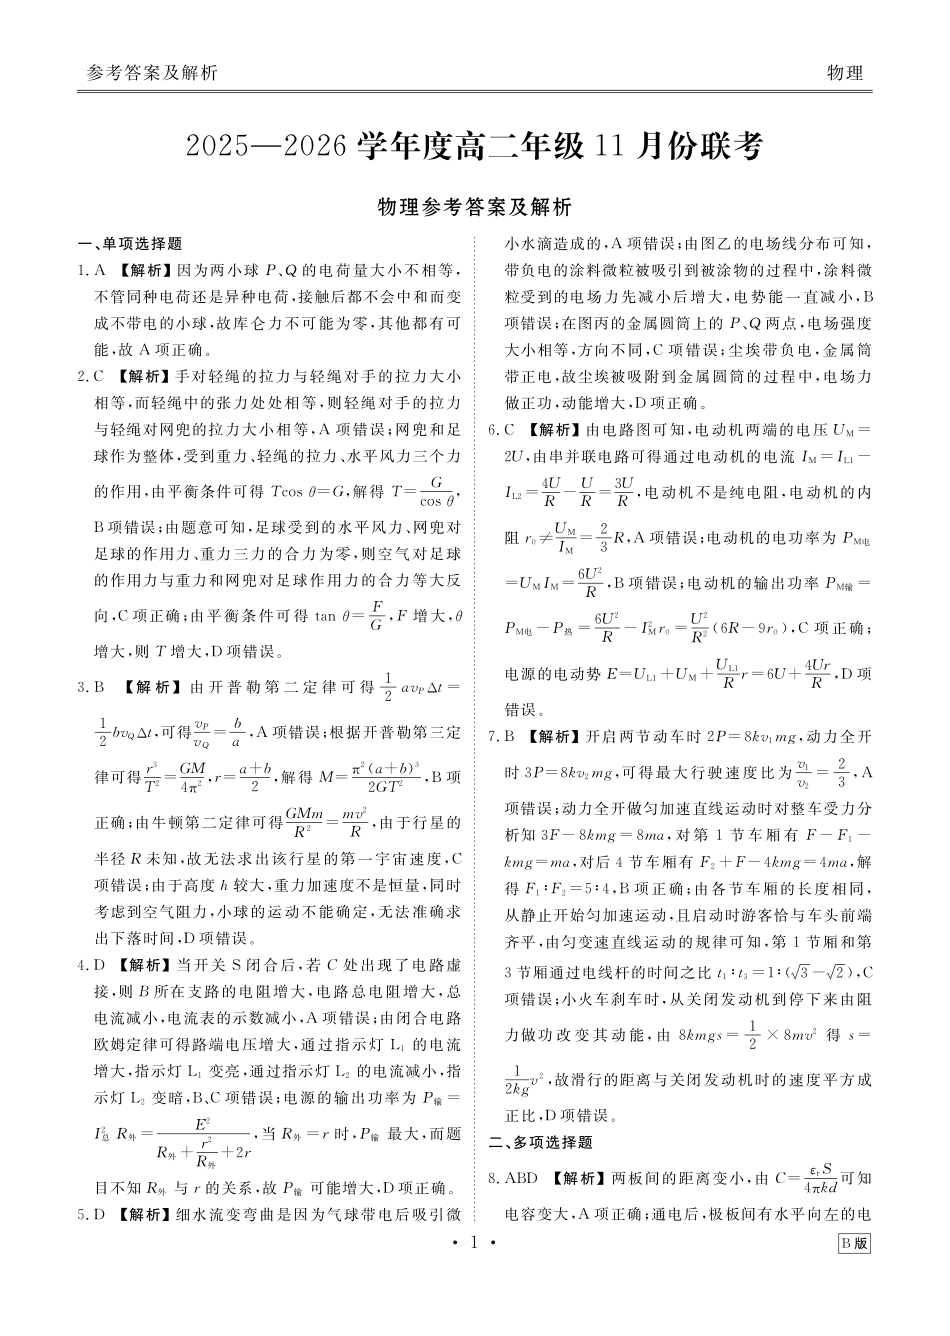 参考答案及解析 物理
2025—2026 学年度高二年级 11 月份联考
物理参考答案及解析
一、单项选择题
1. A 【解析】因为两小球 P、Q 的电荷量大小不相等,
不管同种电荷还是异种电荷,接触后都不会中和而变
成不带电的小球,故库仑力不可能为零,其他都有可
能,故 A 项正确。
2. C 【解析】手对轻绳的拉力与轻绳对手的拉力大小
相等,而轻绳中的张力处处相等,则轻绳对手的拉力
与轻绳对网兜的拉力大小相等,A 项错误;网兜和足
球作为整体,受到重力、轻绳的拉力、水平风力三个力
的作用,由平衡条件可得 Tcos θ=G,解得 T=G/cos θ,
B 项错误;由题意可知,足球受到的水平风力、网兜对
足球的作用力、重力三力的合力为零,则空气对足球
的作用力与重力和网兜对足球作用力的合力等大反
向,C 项正确;由平衡条件可得 tan θ=F/G,F 增大,θ
增大,则 T 增大,D 项错误。
3. B 【解析】由开普勒第二定律可得 1/2 av_PΔt=
1/2 bv_QΔt,可得 v_P/v_Q=b/a,A 项错误;根据开普勒第三定
律可得 r³/T²=GM/4π²,r=(a+b)/2,解得 M=π²(a+b)³/2GT²,B 项
正确;由牛顿第二定律可得 GMm/R²=mv²/R,由于行星的
半径 R 未知,故无法求出该行星的第一宇宙速度,C
项错误;由于高度 h 较大,重力加速度不是恒量,同时
考虑到空气阻力,小球的运动不能确定,无法准确求
出下落时间,D 项错误。
4. D 【解析】当开关 S 闭合后,若 C 处出现了电路虚
接,则 B 所在支路的电阻增大,电路总电阻增大,总
电流减小,电流表的示数减小,A 项错误;由闭合电路
欧姆定律可得路端电压增大,通过指示灯 L₁ 的电流
增大,指示灯 L₁ 变亮,通过指示灯 L₂ 的电流减小,指
示灯 L₂ 变暗,B、C 项错误;电源的输出功率为 P输=
I²总 R外=E²/(R外+r²/R外+2r),当 R外=r 时,P输 最大,而题
目不知 R外 与 r 的关系,故 P输 可能增大,D 项正确。
5. D 【解析】细水流变弯曲是因为气球带电后吸引微
小水滴造成的,A 项错误;由图乙的电场线分布可知,
带负电的涂料微粒被吸引到被涂物的过程中,涂料微
粒受到的电场力先减小后增大,电势能一直减小,B
项错误;在图丙的金属圆筒上的 P、Q 两点,电场强度
大小相等,方向不同,C 项错误;尘埃带负电,金属筒
带正电,故尘埃被吸附到金属圆筒的过程中,电场力
做正功,动能增大,D 项正确。
6. C 【解析】由电路图可知,电动机两端的电压 U_M=
2U,由串并联电路可得通过电动机的电流 I_M=I_L1−
I_L2=4U/R−U/R=3U/R,电动机不是纯电阻,电动机的内
阻 r₀≠U_M/I_M=2/3 R,A 项错误;电动机的电功率为 P_M电
=U_M I_M=6U²/R,B 项错误;电动机的输出功率 P_M输=
P_M电−P热=6U²/R−I²_M r₀=U²/R²(6R−9r₀),C 项正确;
电源的电动势 E=U_L1+U_M+U_L1/R r=6U+4Ur/R,D 项
错误。
7. B 【解析】开启两节动车时 2P=8kv₁mg,动力全开
时 3P=8kv₂mg,可得最大行驶速度比为 v₁/v₂=2/3,A
项错误;动力全开做匀加速直线运动时对整车受力分
析知 3F−8kmg=8ma,对第 1 节车厢有 F−F₁−
kmg=ma,对后 4 节车厢有 F₂+F−4kmg=4ma,解
得 F₁∶F₂=5∶4,B 项正确;由各节车厢的长度相同,
从静止开始匀加速运动,且启动时游客恰与车头前端
齐平,由匀变速直线运动的规律可知,第 1 节厢和第
3 节厢通过电线杆的时间之比 t₁∶t₃=1∶(√3−√2),C
项错误;小火车刹车时,从关闭发动机到停下来由阻
力做功改变其动能,由 8kmgs=1/2×8mv² 得 s=
1/2kg v²,故滑行的距离与关闭发动机时的速度平方成
正比,D 项错误。
二、多项选择题
8. ABD 【解析】两板间的距离变小,由 C=εᵣS/4πkd 可知
电容变大,A 项正确;通电后,极板间有水平向左的电
• 1 •
B 版